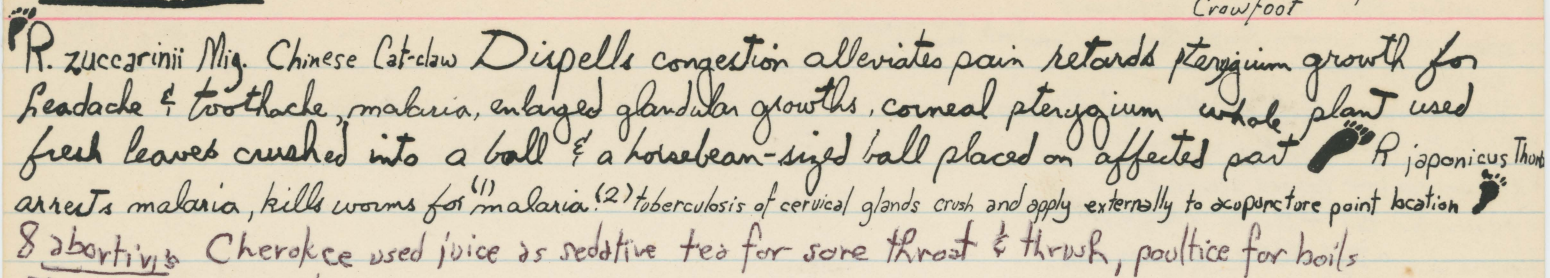 Crowfoot
R. zuccarinii Miq. Chinese Cat-claw Dispells congestion alleviates pain retards pterygium growth for
headache & toothache, malaria, enlarged glandular growths, corneal pterygium whole plant used
fresh leaves crushed into a ball & a horsebean-sized ball placed on affected part R japonicus Thunb
arrests malaria, kills worms for (1) malaria (2) tuberculosis of cervical glands crush and apply externally to acupuncture point location
8 abortivis Cherokee used juice as sedative tea for sore throat & thrush, poultice for boils